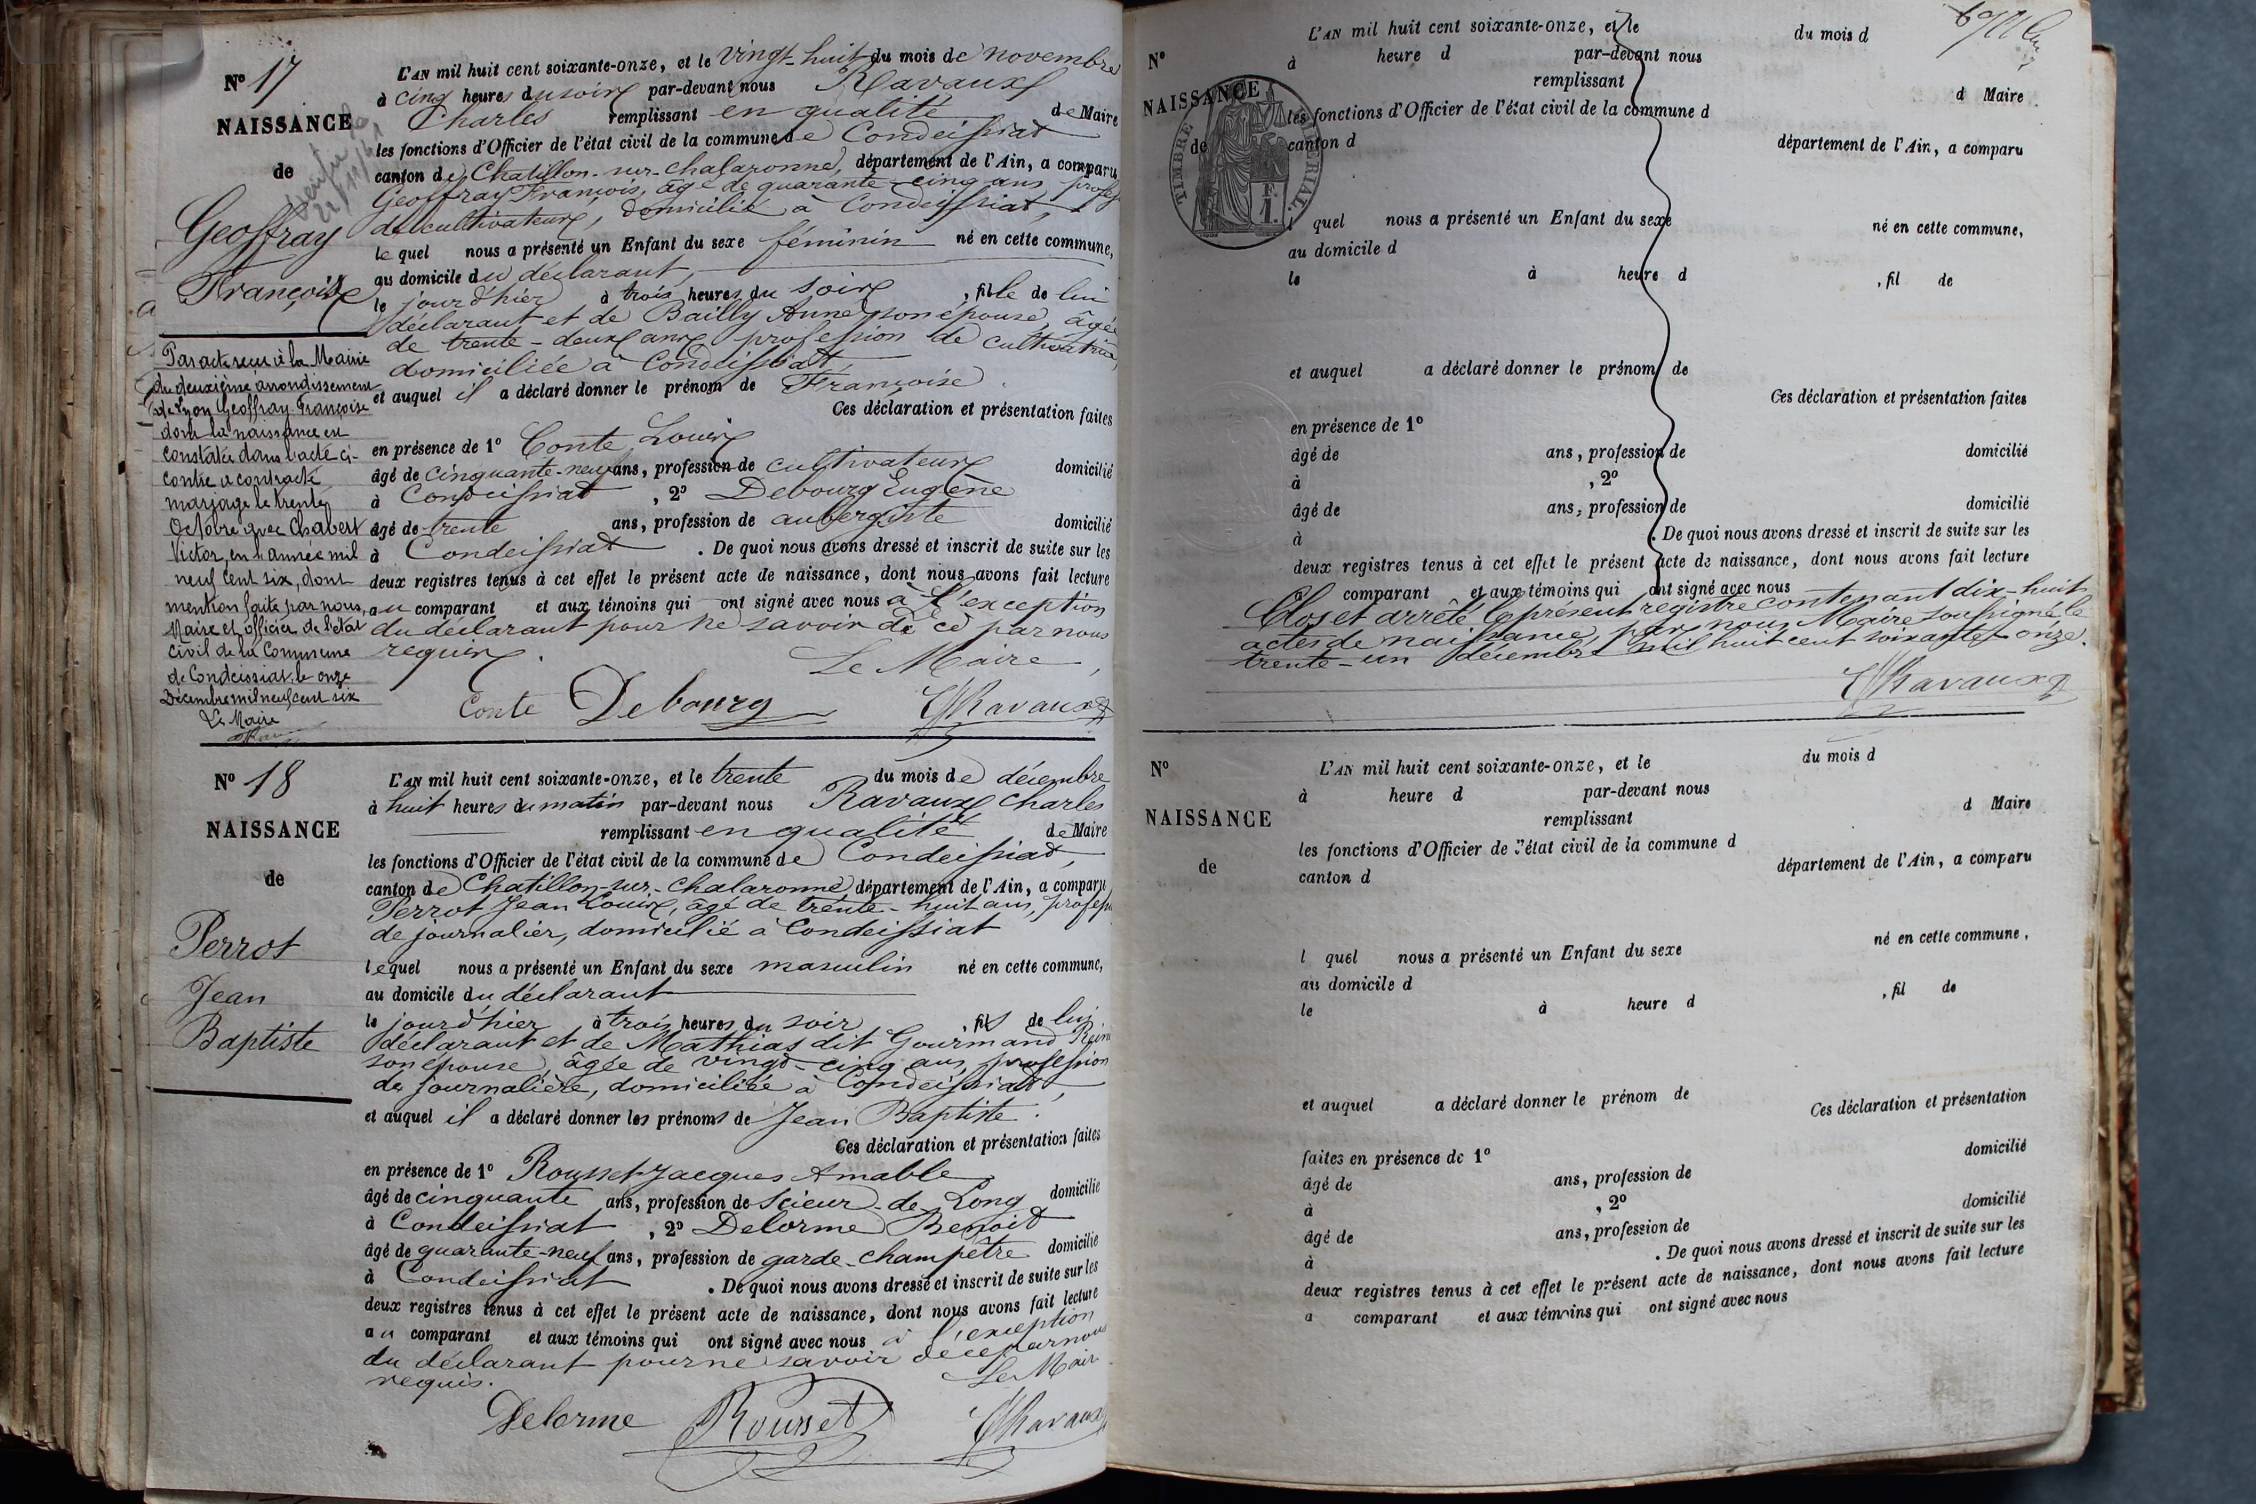 N° 17
NAISSANCE
de
Geoffray
Françoise
L'AN mil huit cent soixante-onze, et le vingt-huit du mois de novembre
à cinq heures du soir par-devant nous Ravaux
Charles remplissant en qualité de Maire
les fonctions d'Officier de l'état civil de la commune de Condeissiat
canton de Chatillon-sur-chalaronne, département de l'Ain, a comparu
Geoffray François, âgé de quarante-cinq ans, profess
de cultivateur, domicilié à Condeissiat,
le quel nous a présenté un Enfant du sexe féminin né en cette commune,
au domicile du déclarant,
le jour d'hier à trois heures du soir, fille de lui
déclarant et de Bailly Anne son épouse, âgée
de trente-deux ans, profession de cultivatrice,
domiciliée à Condeissiat,
et auquel il a déclaré donner le prénom de Françoise.
Ces déclaration et présentation faites
en présence de 1° Conte Louis
âgé de cinquante-neuf ans, profession de cultivateur domicilié
à Condeissiat, 2° Debourg Eugène
âgé de trente ans, profession de aubergiste domicilié
à Condeissiat. De quoi nous avons dressé et inscrit de suite sur les
deux registres tenus à cet effet le présent acte de naissance, dont nous avons fait lecture
au comparant et aux témoins qui ont signé avec nous à l'exception
du déclarant pour ne savoir de ce par nous
requis.
Le Maire,
Conte Debourg Ravaux
Par acte reçu à la Mairie
du deuxième arrondissement
de Lyon Geoffray Françoise
dont la naissance est
constatée dans l'acte ci-
contre a contracté
mariage le trente
Octobre avec Chabert
Victor, en l'année mil
neuf cent six, dont
mention faite par nous,
Maire et officier de l'état
civil de la Commune
de Condeissiat, le onze
Décembre mil neuf cent six
Le Maire
N° 18
NAISSANCE
de
Perrot
Jean
Baptiste
L'AN mil huit cent soixante-onze, et le trente du mois de décembre
à huit heures du matin par-devant nous Ravaux Charles
remplissant en qualité de Maire
les fonctions d'Officier de l'état civil de la commune de Condeissiat,
canton de Chatillon-sur-chalaronne, département de l'Ain, a comparu
Perrot Jean Louis, âgé de trente-huit ans, profess
de journalier, domicilié à Condeissiat
lequel nous a présenté un Enfant du sexe masculin né en cette commune,
au domicile du déclarant
le jour d'hier à trois heures du soir, fils de lui
déclarant et de Mathias dit Gourmand Reine
son épouse, âgée de vingt-cinq ans, profession
de journalière, domiciliée à Condeissiat,
et auquel il a déclaré donner les prénoms de Jean Baptiste.
Ces déclaration et présentation faites
en présence de 1° Rousset Jacques Amable
âgé de cinquante ans, profession de Scieur-de Long domicilié
à Condeissiat, 2° Delorme Benoit
âgé de quarante-neuf ans, profession de garde-champêtre domicilié
à Condeissiat. De quoi nous avons dressé et inscrit de suite sur les
deux registres tenus à cet effet le présent acte de naissance, dont nous avons fait lecture
au comparant et aux témoins qui ont signé avec nous à l'exception
du déclarant pour ne savoir de ce par nous
requis.
Le Maire
Delorme Rousset Ravaux
N°
NAISSANCE
de
TIMBRE IMPERIAL
F.
1.
L'AN mil huit cent soixante-onze, et le du mois d
à heure d par-devant nous
remplissant d Maire
les fonctions d'Officier de l'état civil de la commune d
canton d département de l'Ain, a comparu
l quel nous a présenté un Enfant du sexe né en cette commune,
au domicile d
le à heure d , fil de
et auquel a déclaré donner le prénom de
Ces déclaration et présentation faites
en présence de 1°
âgé de ans, profession de domicilié
à , 2°
âgé de ans, profession de domicilié
à . De quoi nous avons dressé et inscrit de suite sur les
deux registres tenus à cet effet le présent acte de naissance, dont nous avons fait lecture
a comparant et aux témoins qui ont signé avec nous
Clos et arrêté le présent registre contenant dix-huit
actes de naissance, par nous Maire soussigné, le
trente-un décembre mil huit cent soixante-onze.
Ravaux
N°
NAISSANCE
de
L'AN mil huit cent soixante-onze, et le du mois d
à heure d par-devant nous
remplissant d Maire
les fonctions d'Officier de l'état civil de la commune d
canton d département de l'Ain, a comparu
l quel nous a présenté un Enfant du sexe né en cette commune,
au domicile d
le à heure d , fil de
et auquel a déclaré donner le prénom de
Ces déclaration et présentation
faites en présence de 1° domicilié
âgé de ans, profession de
à , 2° domicilié
âgé de ans, profession de
à . De quoi nous avons dressé et inscrit de suite sur les
deux registres tenus à cet effet le présent acte de naissance, dont nous avons fait lecture
a comparant et aux témoins qui ont signé avec nous